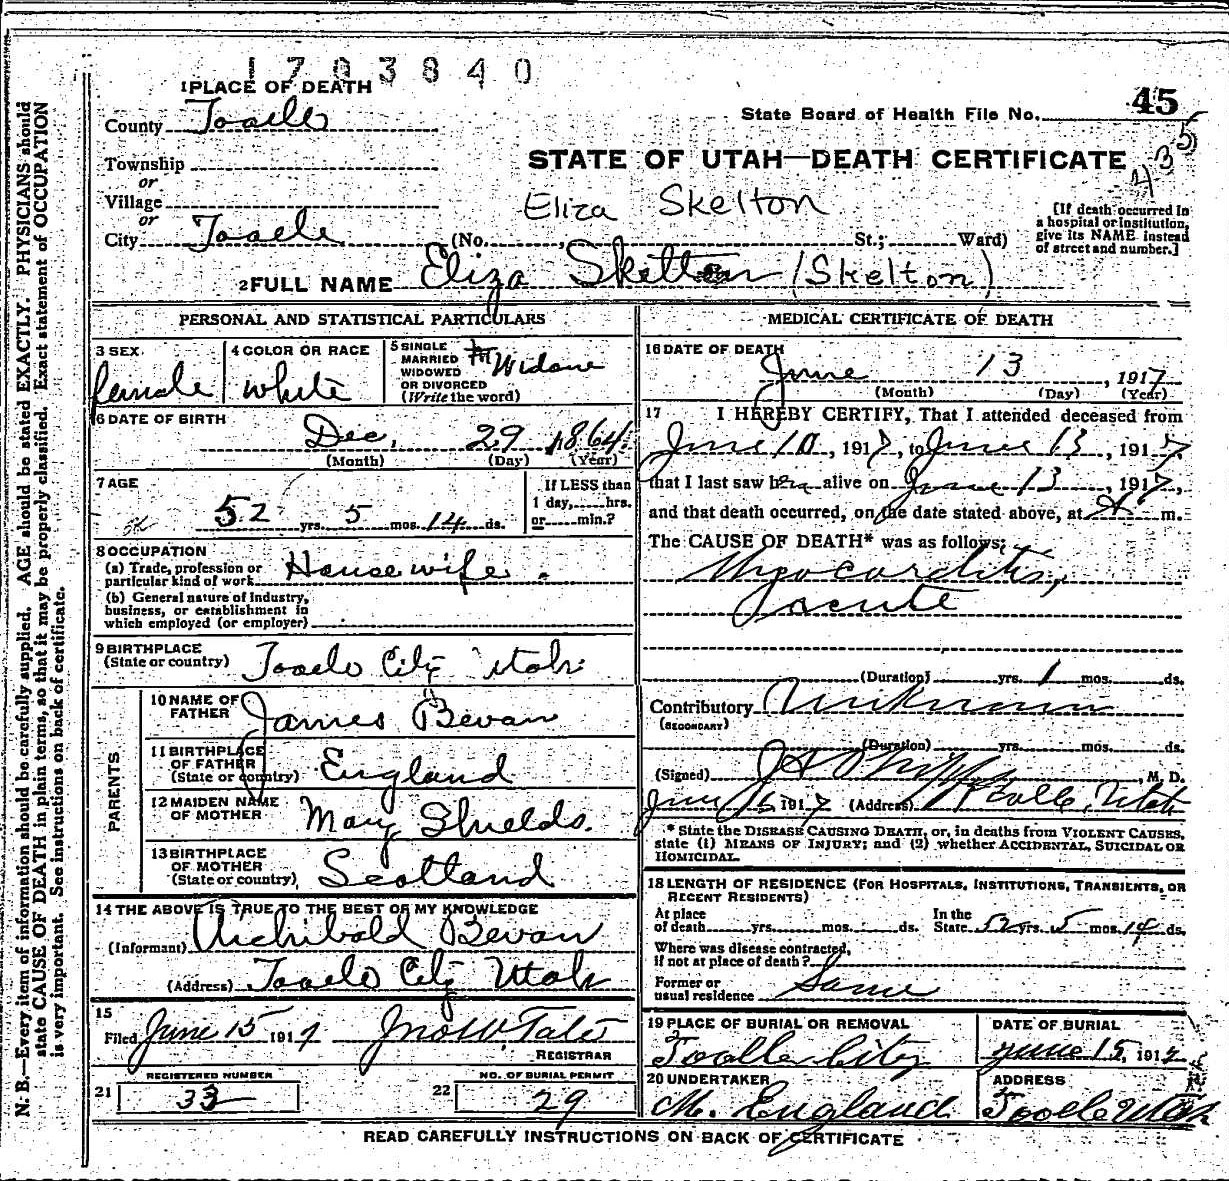 1703840
1 PLACE OF DEATH
County Tooele
Township
or
Village
or
City Tooele (No. , St.; Ward)
State Board of Health File No. 45
435
STATE OF UTAH—DEATH CERTIFICATE
Eliza Skelton
[If death occurred in a hospital or institution, give its NAME instead of street and number.]
2 FULL NAME Eliza Skelton (Skelton)
PERSONAL AND STATISTICAL PARTICULARS
3 SEX female
4 COLOR OR RACE white
5 SINGLE MARRIED WIDOWED OR DIVORCED (Write the word) Widow
6 DATE OF BIRTH
Dec. 29 1864
(Month) (Day) (Year)
7 AGE
52 yrs. 5 mos. 14 ds.
If LESS than 1 day, hrs. or min.?
8 OCCUPATION
(a) Trade, profession or particular kind of work Housewife.
(b) General nature of industry, business, or establishment in which employed (or employer)
9 BIRTHPLACE
(State or country) Tooele City Utah
PARENTS
10 NAME OF FATHER James Bevan
11 BIRTHPLACE OF FATHER (State or country) England
12 MAIDEN NAME OF MOTHER Mary Shields.
13 BIRTHPLACE OF MOTHER (State or country) Scotland
14 THE ABOVE IS TRUE TO THE BEST OF MY KNOWLEDGE
(Informant) Archibald Bevan
(Address) Tooele City Utah
15
Filed June 15 1917 Jno W. Tate
REGISTRAR
REGISTERED NUMBER
21 33
NO. OF BURIAL PERMIT
22 29
MEDICAL CERTIFICATE OF DEATH
16 DATE OF DEATH
June 13, 1917
(Month) (Day) (Year)
17 I HEREBY CERTIFY, That I attended deceased from
June 10, 1917, to June 13, 1917,
that I last saw her alive on June 13, 1917,
and that death occurred, on the date stated above, at m.
The CAUSE OF DEATH* was as follows:
Myocarditis,
acute
(Duration) yrs. 1 mos. ds.
Contributory Unknown
(SECONDARY)
(Duration) yrs. mos. ds.
(Signed) , M. D.
June 15 1917 (Address) Tooele, Utah
* State the DISEASE CAUSING DEATH, or, in deaths from VIOLENT CAUSES, state (1) MEANS OF INJURY; and (2) whether ACCIDENTAL, SUICIDAL OR HOMICIDAL.
18 LENGTH OF RESIDENCE (FOR HOSPITALS, INSTITUTIONS, TRANSIENTS, OR RECENT RESIDENTS)
At place of death yrs. mos. ds. In the State 52 yrs. 5 mos. 14 ds.
Where was disease contracted, if not at place of death?
Former or usual residence Same
19 PLACE OF BURIAL OR REMOVAL Tooele City
DATE OF BURIAL June 15, 1917
20 UNDERTAKER M. England
ADDRESS Tooele Utah
READ CAREFULLY INSTRUCTIONS ON BACK OF CERTIFICATE
N. B.—Every item of information should be carefully supplied. AGE should be stated EXACTLY. PHYSICIANS should
state CAUSE OF DEATH in plain terms, so that it may be properly classified. Exact statement of OCCUPATION
is very important. See instructions on back of certificate.